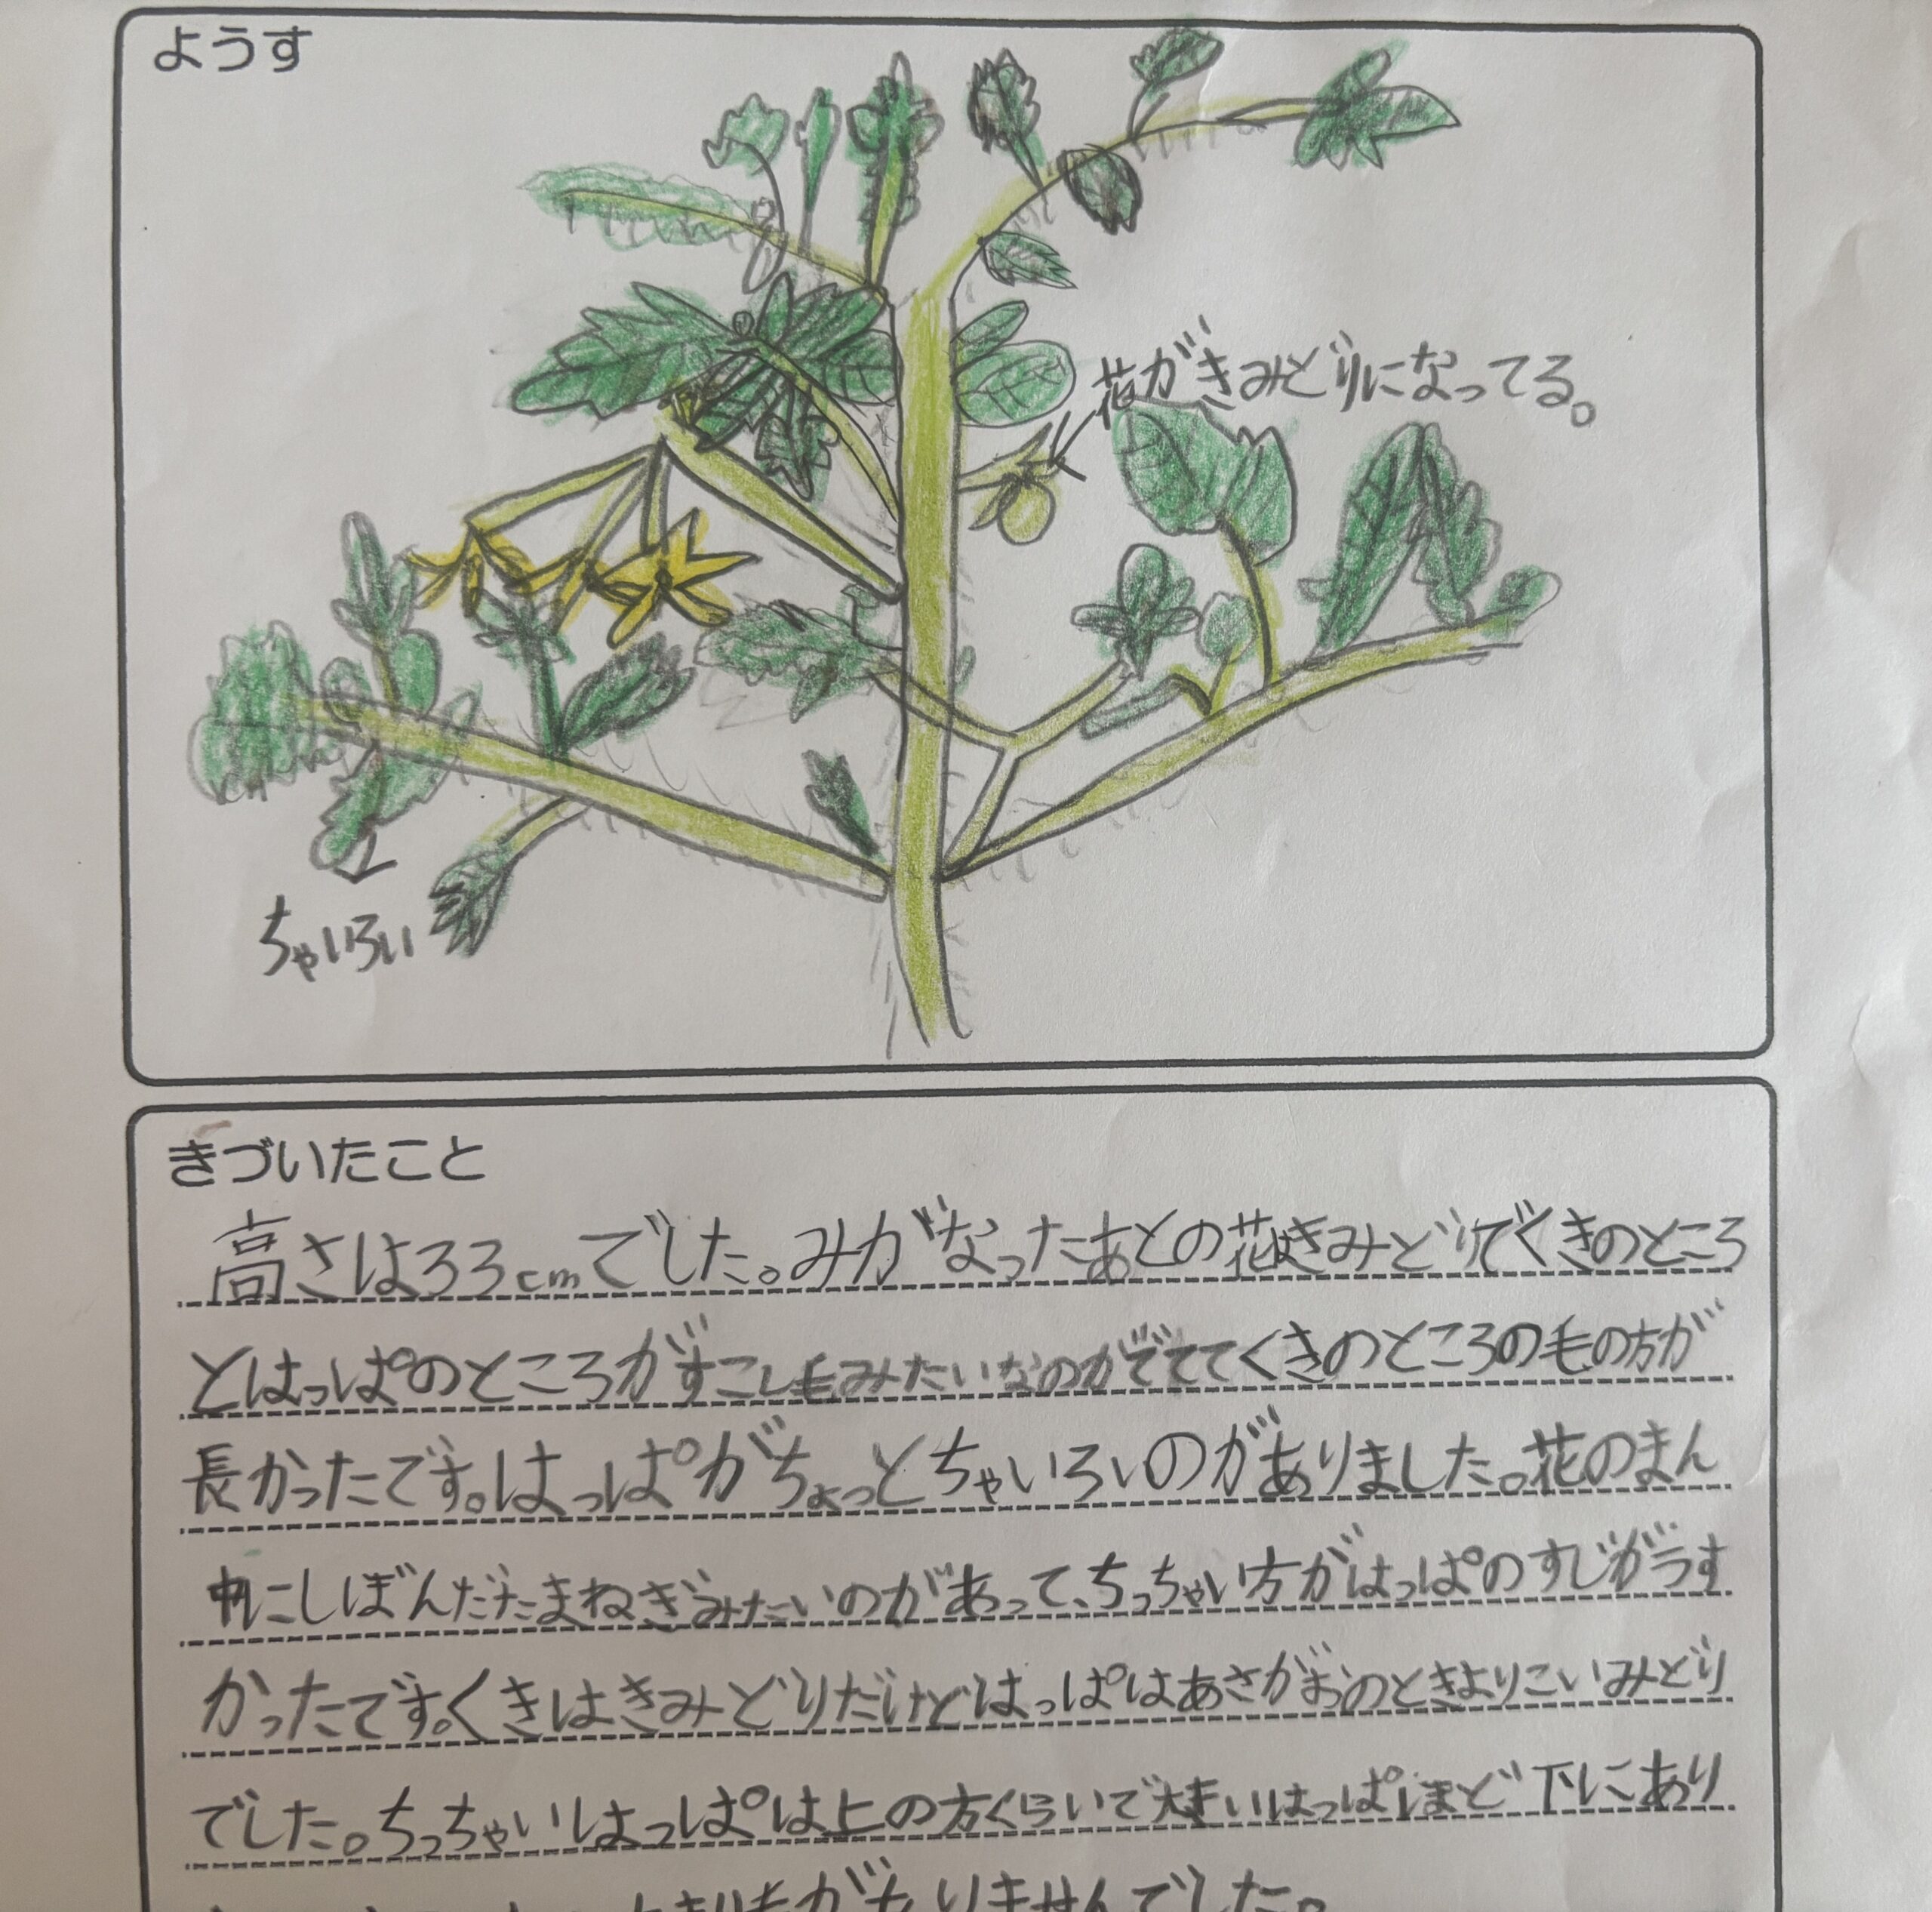 ようす
花がきみどりになってる。
ちゃいろい
きづいたこと
高さは33cmでした。みがなったあとの花はきみどりでくきのところ
とはっぱのところがすこし毛みたいなのがでててくきのところの毛の方が
長かったです。はっぱがちょっとちゃいろいのがありました。花のまん
中にしぼんだたまねぎみたいのがあって、ちっちゃい方がはっぱのすじがうす
かったです。くきはきみどりだけどはっぱはあさがおのときよりこいみどり
でした。ちっちゃいはっぱは上の方くらいで大きいはっぱほど下にあり
ませんでした。